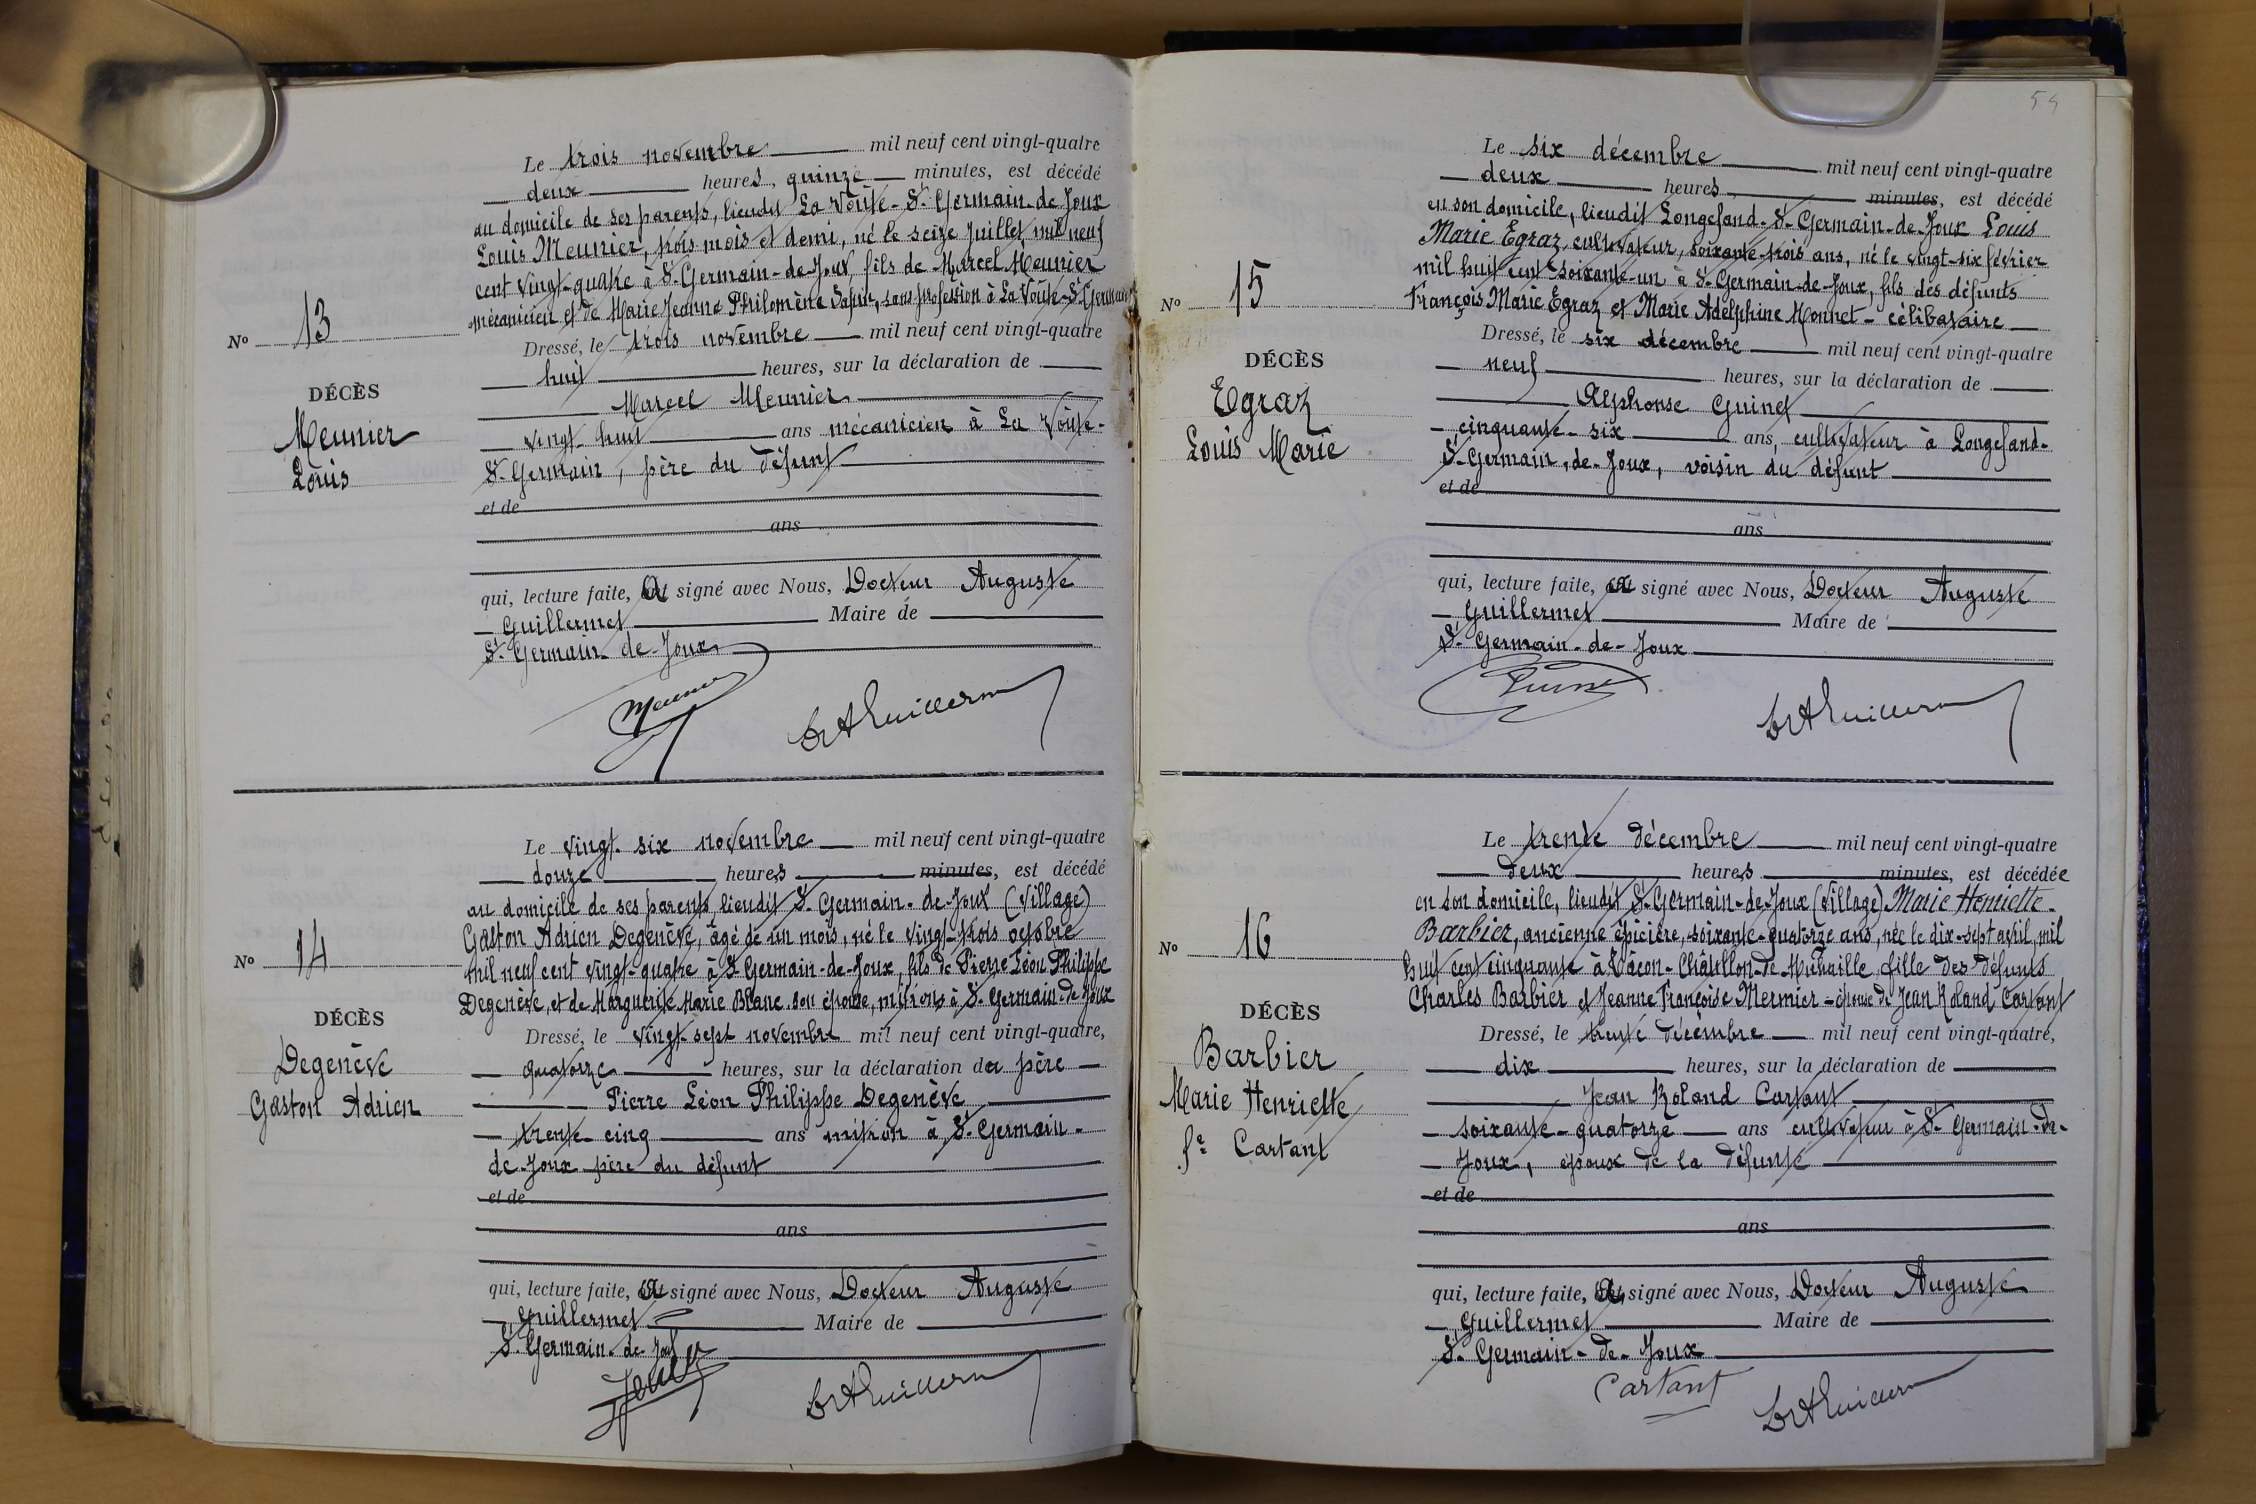 Le trois novembre mil neuf cent vingt-quatre
deux heures, quinze minutes, est décédé
au domicile de ses parents, lieudit La Voûte-St-Germain-de-Joux
Louis Meunier, trois mois et demi, né le seize Juillet mil neuf
cent vingt-quatre à St-Germain-de-Joux fils de Marcel Meunier
mécanicien et de Marie Jeanne Philomène sans profession à La Voûte-St-Germain
No 13
DÉCÈS
Meunier
Louis
Dressé, le trois novembre mil neuf cent vingt-quatre
huit heures, sur la déclaration de
Marcel Meunier
vingt-huit ans mécanicien à La Voûte-
St-Germain, père du défunt
et de
ans
qui, lecture faite, a signé avec Nous, Docteur Auguste
Guillermet Maire de
St-Germain-de-Joux
Meunier
Dr A Guillermet
Le vingt-six novembre mil neuf cent vingt-quatre
douze heures minutes, est décédé
au domicile de ses parents, lieudit St-Germain-de-Joux (Village)
Gaston Adrien Degenève, âgé de un mois, né le vingt-trois octobre
mil neuf cent vingt-quatre à St-Germain-de-Joux, fils de Pierre Léon Philippe
Degenève, et de Marguerite Marie Blanc son épouse, mitrons à St-Germain-de-Joux
No 14
DÉCÈS
Degenève
Gaston Adrien
Dressé, le vingt-sept novembre mil neuf cent vingt-quatre,
quatorze heures, sur la déclaration du père
Pierre Léon Philippe Degenève
trente cinq ans mitron à St-Germain-
de-Joux père du défunt
et de
ans
qui, lecture faite, a signé avec Nous, Docteur Auguste
Guillermet Maire de
St-Germain-de-Joux
Dr A Guillermet
54
Le six décembre mil neuf cent vingt-quatre
deux heures minutes, est décédé
en son domicile, lieudit Longefand-St-Germain-de-Joux Louis
Marie Egraz, cultivateur, soixante-trois ans, né le vingt-six février
mil huit cent soixante-un à St-Germain-de-Joux, fils des défunts
François Marie Egraz et Marie Adelphine Monnet - célibataire
No 15
DÉCÈS
Egraz
Louis Marie
Dressé, le six décembre mil neuf cent vingt-quatre
neuf heures, sur la déclaration de
Alphonse Guinet
cinquante-six ans, cultivateur à Longefand-
St-Germain-de-Joux, voisin du défunt
et de
ans
qui, lecture faite, a signé avec Nous, Docteur Auguste
Guillermet Maire de
St-Germain-de-Joux
Guinet
Dr A Guillermet
Le trente décembre mil neuf cent vingt-quatre
deux heures minutes, est décédée
en son domicile, lieudit St-Germain-de-Joux (Village) Marie Henriette
Barbier, ancienne épicière, soixante-quatorze ans, née le dix-sept avril mil
huit cent cinquante à Vâcon-Châtillon-de-Michaille, fille des défunts
Charles Barbier et Jeanne Françoise Mermier - épouse de Jean Roland Cartant
No 16
DÉCÈS
Barbier
Marie Henriette
fe Cartant
Dressé, le trente décembre mil neuf cent vingt-quatre,
dix heures, sur la déclaration de
Jean Roland Cartant
soixante-quatorze ans cultivateur à St-Germain-de-
Joux, époux de la défunte
et de
ans
qui, lecture faite, a signé avec Nous, Docteur Auguste
Guillermet Maire de
St-Germain-de-Joux
Cartant
Dr A Guillermet